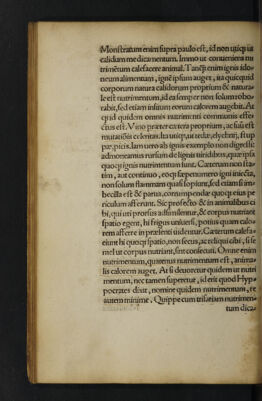 Monstratum enim supra paulo est, id non uicq; ut
calidam medicamentum. Immo ut conueniens nu
trimētum calefacere animal. Tanq̃ enim ignis ido-
neum alimentum, ignē ipsum auget, ita quicquid
corporum natura calidorum proprium & natura-
le est nutrimentum, id ea semper non solum robo-
rabit, sed etiam insitum eorum calorem augebit. At
quod quidem omnis nutrimenti communis effe-
ctus est. Vino præter cætera proprium, ac suū est
mutationis celeritas
admoneamus rursum de lignis uiridibus, quæ ipsa
quoq; ignis nutrimentum sunt. Cæterum non sta-
tim, aut continuo, eoq; sæpenumero igni iniecta,
non solum flammam quasi sopiunt, sed etiam im-
becilla est & parua, corrumpendæ quoq; eius pe
riculum afferunt. Sic profecto & in animalibus ci
bi, qui uti prorsus assimilentur, & corpus nutriant
spatio egent, hi frigus uniuersi, potius quam calo-
rem afferre in præsenti uidentur. Cæterum calefa-
ciunt hi quoq; spatio, non secus, ac reliqui cibi, si se
mel ut corpus nutriant, sint consecuti. Omne enim
nutrimentum, quatenus nutrimentum est, anima-
lis calorem auget. At si deuoretur quidem ut nutri
mentum, nec tamen superetur, id erit quod Hyp-
pocrates dixit, nomine quidem nutrimentum, re
autem minime. Quippe cum trifariam nutrimen-
tum dica-